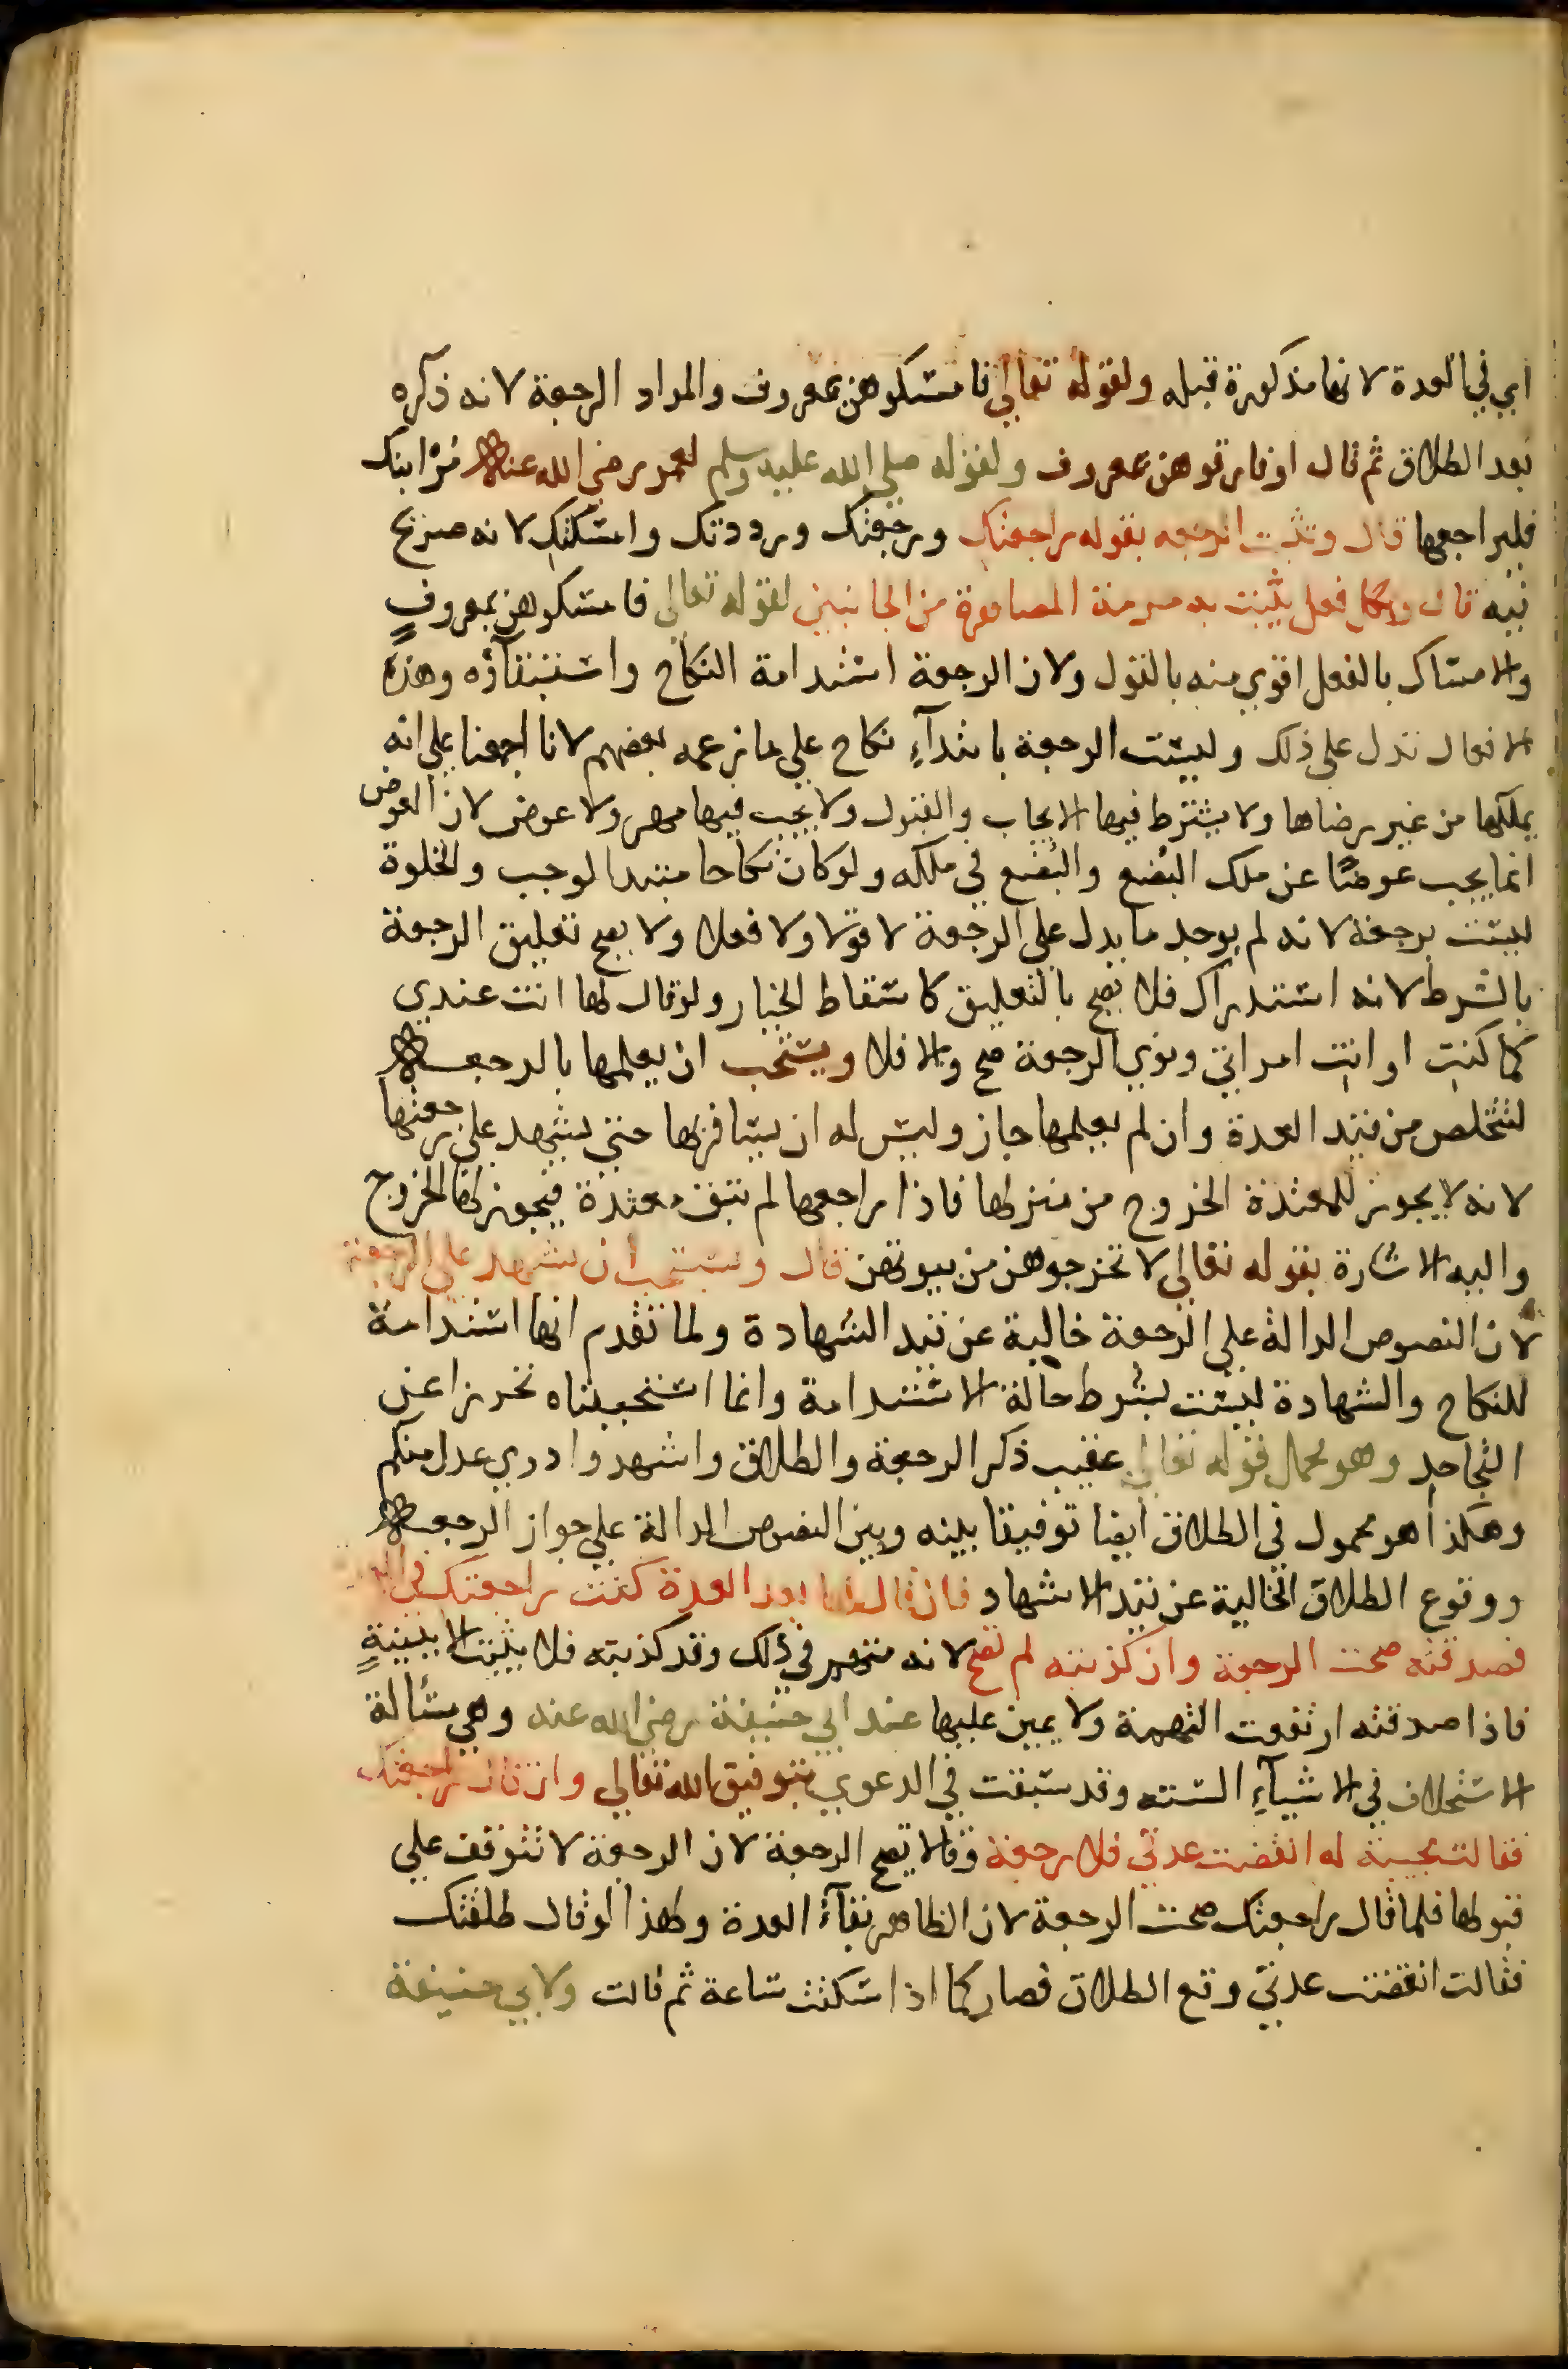 اي في العدة لانها مذكورة قبله ولقوله تعالي فامسكوهن بمعروف والمراد الرجعة لانه ذكره
بعد الطلاق ثم قال او فارقوهن بمعروف ولقوله صلي الله عليه وسلم لعمر رضي الله عنه مر ابنك
فليراجعها قال وتثبت الرجعه بقوله راجعتك ورجعتك ورددتك وامسكتك لانه صريح
فيه قال وبكل فعل يثبت به حرمة المصاهرة من الجانبين لقوله تعالي فامسكوهن بمعروفٍ
والامساك بالفعل اقوي منه بالقول ولان الرجعة استدامة النكاح واستبقاؤه وهذه
الافعال تدل علي ذلك وليست الرجعة بابتدآءِ نكاح علي ما زعمه بعضهم لانا اجمعنا علي انه
يملكها من غير رضاها ولا يشترط فيها الايجاب والقبول ولا يجب فيها مهر ولا عوض لان العوض
انما يجب عوضًا عن ملك البضع والبضع في ملكه ولو كان نكاحا مبتدا لوجب والخلوة
ليست برجعة لانه لم يوجد ما يدل علي الرجعة لا قولا ولا فعلا ولا يصح تعليق الرجعة
بالشرط لانه استدراك فلا يصح بالتعليق كاسقاط الخيار ولو قال لها انت عندي
كما كنتِ او انتِ امراتي ونوي الرجعة صح والا فلا ويستحب ان يعلمها بالرجعه
لتتخلص من قيد العدة وان لم يعلمها جاز وليس له ان يسافر بها حتي يشهد علي رجعتها
لانه لا يجوز للمعتدة الخروج من منزلها فاذا راجعها لم تبق معتدة فيجوز لها الخروج
واليه الاشارة بقوله تعالي لا تخرجوهن من بيوتهن قال ويستحب ان يشهد علي الرجعة
لان النصوص الدالة علي الرجعة خالية عن قيد الشهادة ولما تقدم انها استدامة
للنكاح والشهادة ليست بشرط حالة الاستدامة وانما استحببناه تحرزا عن
التجاحد وهو محمل قوله تعالي عقيب ذكر الرجعة والطلاق واشهدوا ذوي عدل منكم
وهكذا هو محمول في الطلاق ايضا توفيقا بينه وبين النصوص الدالة علي جواز الرجعه
ووقوع الطلاق الخالية عن قيد الاشهاد فان قال لها بعد العدة كنت راجعتك في
فصدقته صحت الرجعة وان كذبته لم تصح لانه متهم في ذلك وقد كذبته فلا يثبت الا ببينةٍ
فاذا صدقته ارتفعت التهمة ولا يمين عليها عند ابي حنيفة رضي الله عنه وهي مسالة
الاستحلاف في الاشيآءِ الستة وقد سبقت في الدعوي بتوفيق الله تعالي وان قال راجعتك
فقالت مجيبة له انقضت عدتي فلا رجعة وقالا تصح الرجعة لان الرجعة لا تتوقف علي
قبولها فلما قال راجعتك صحت الرجعة لان الظاهر بقآءُ العدة ولهذا لو قال طلقتك
فقالت انقضت عدتي وقع الطلاق فصار كما اذا سكتت ساعة ثم قالت ولابي حنيفة